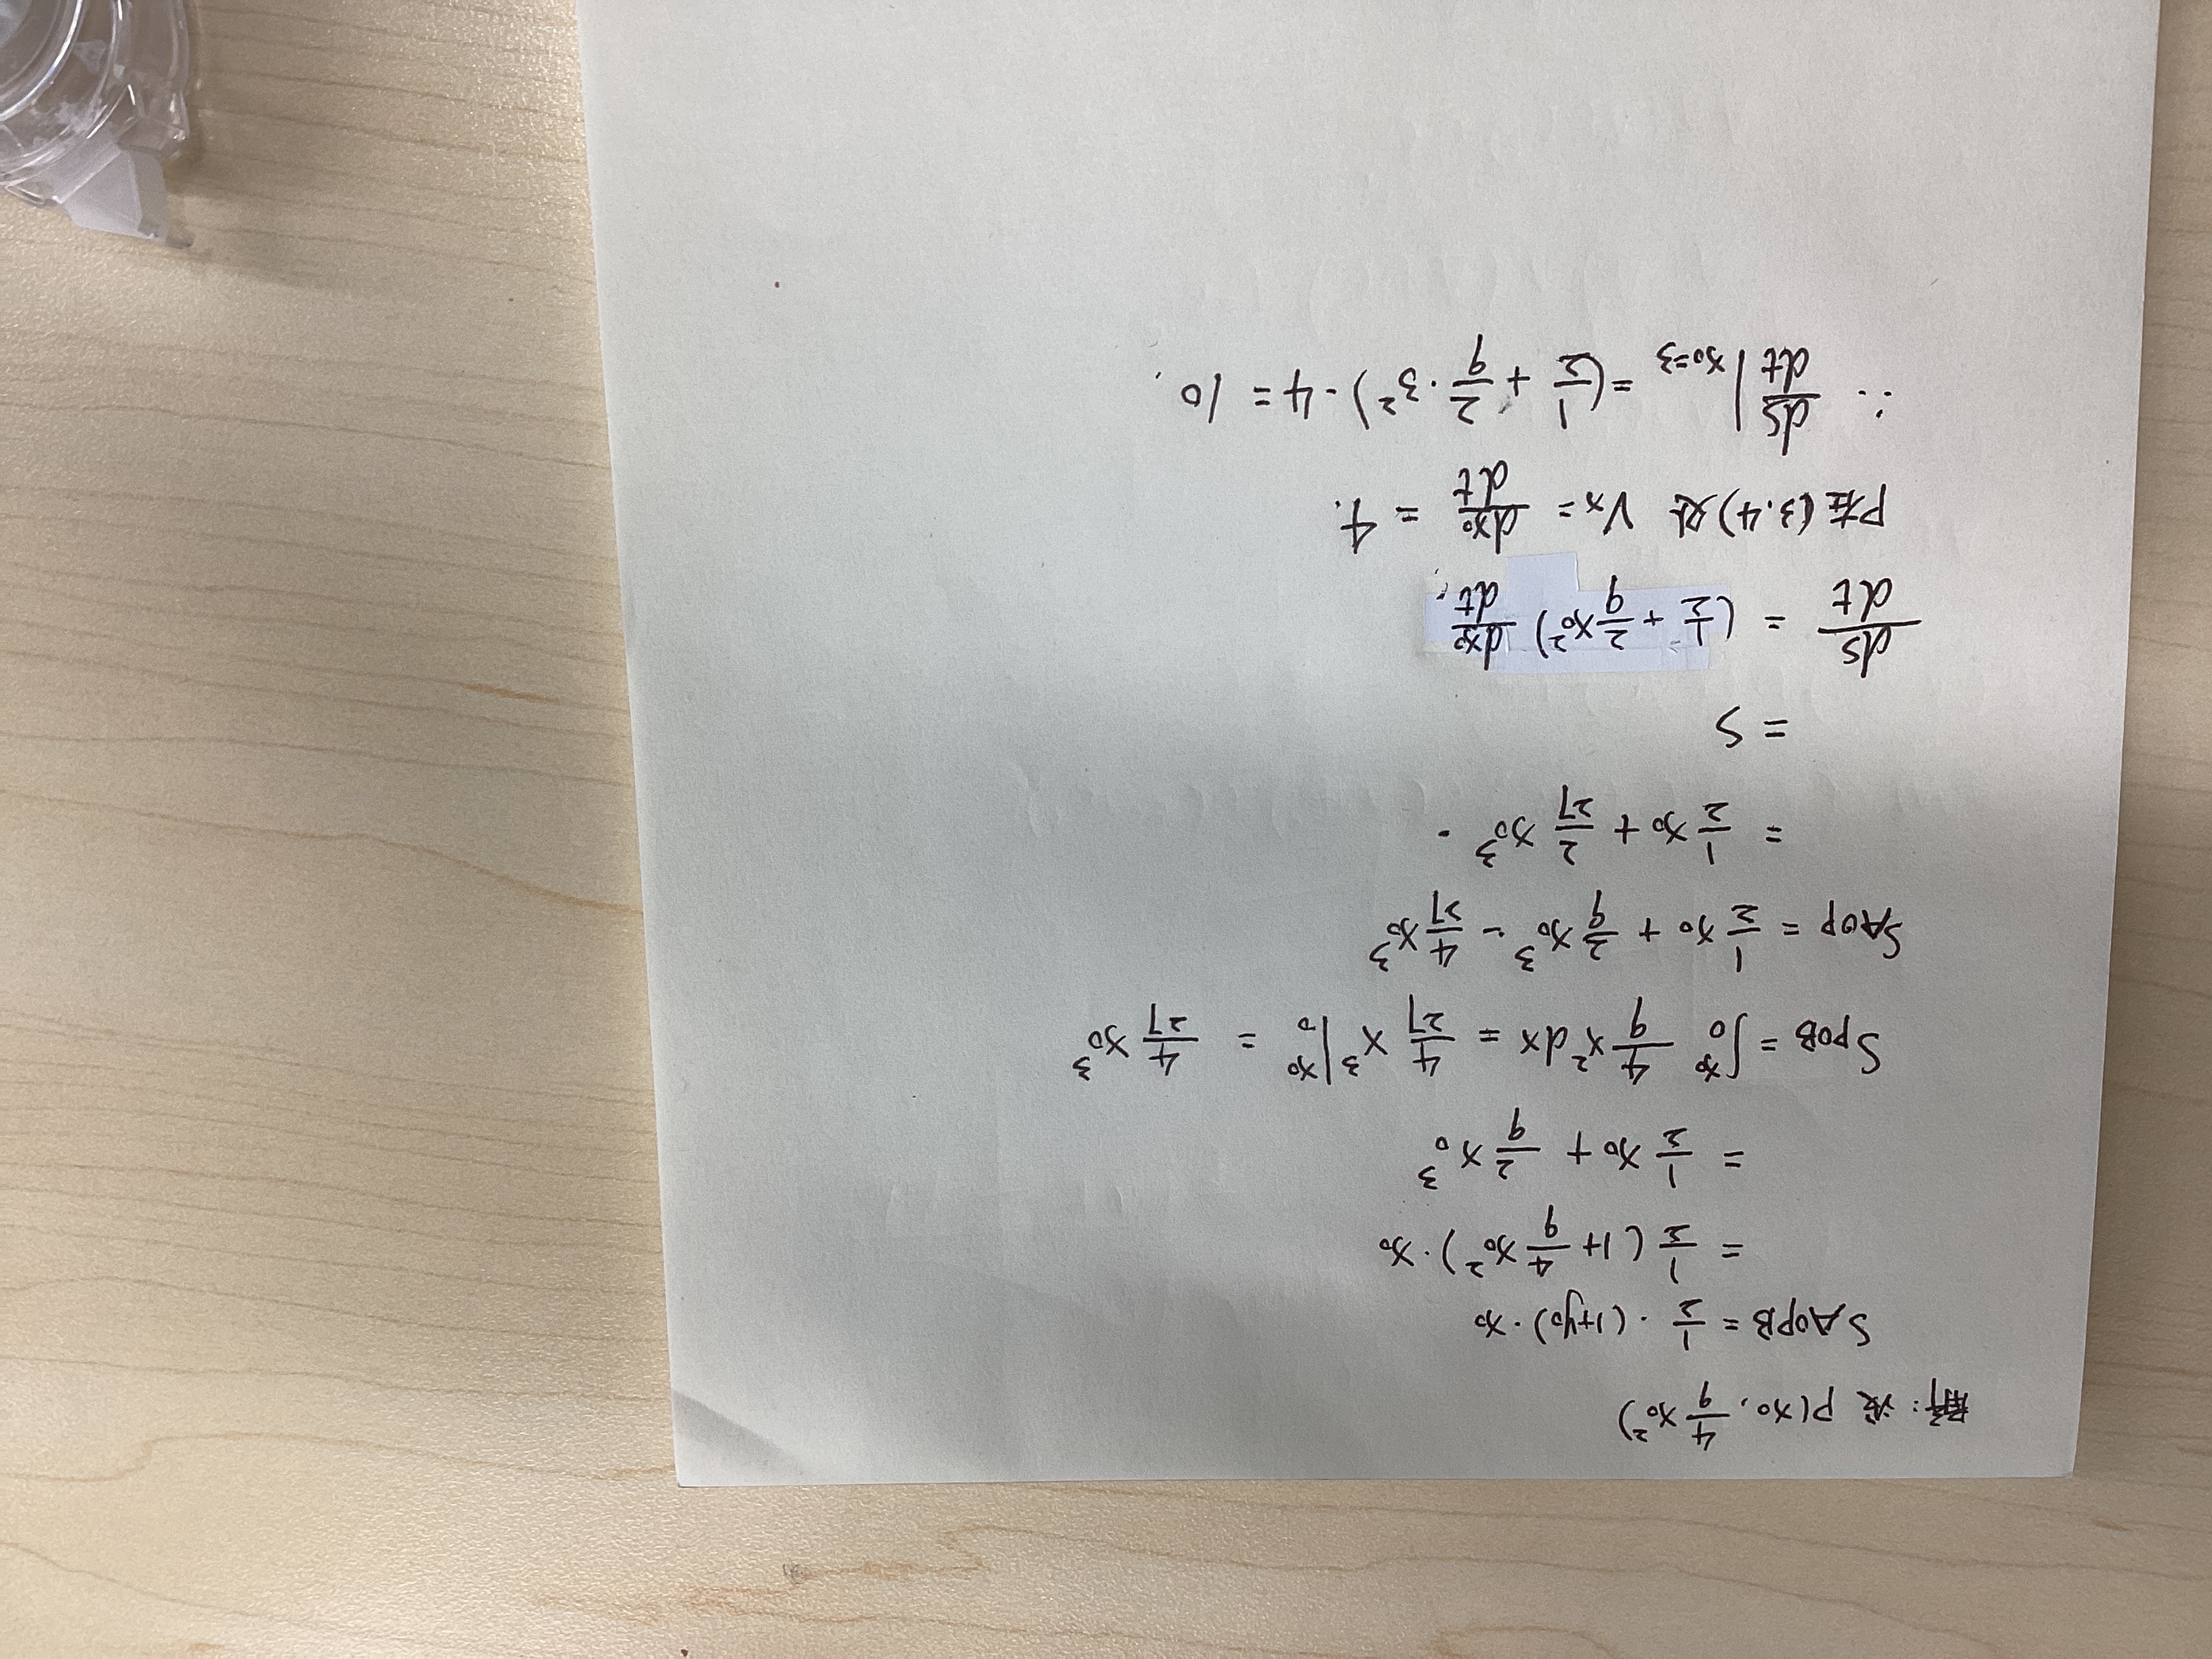 解: 设 P(x₀, 4/9 x₀²)
S AOPB = 1/2 · (1+y₀) · x₀
= 1/2 (1+ 4/9 x₀²) · x₀
= 1/2 x₀ + 2/9 x₀³
S POB = ∫₀^x₀ 4/9 x² dx = 4/27 x³ |₀^x₀ = 4/27 x₀³
S AOP = 1/2 x₀ + 2/9 x₀³ - 4/27 x₀³
= 1/2 x₀ + 2/27 x₀³ .
= S
dS/dt = (1/2 + 2/9 x₀²) dx₀/dt .
P在(3.4)处 Vx = dx₀/dt = 4.
∴ dS/dt |x₀=3 = (1/2 + 2/9 · 3²) · 4 = 10 .